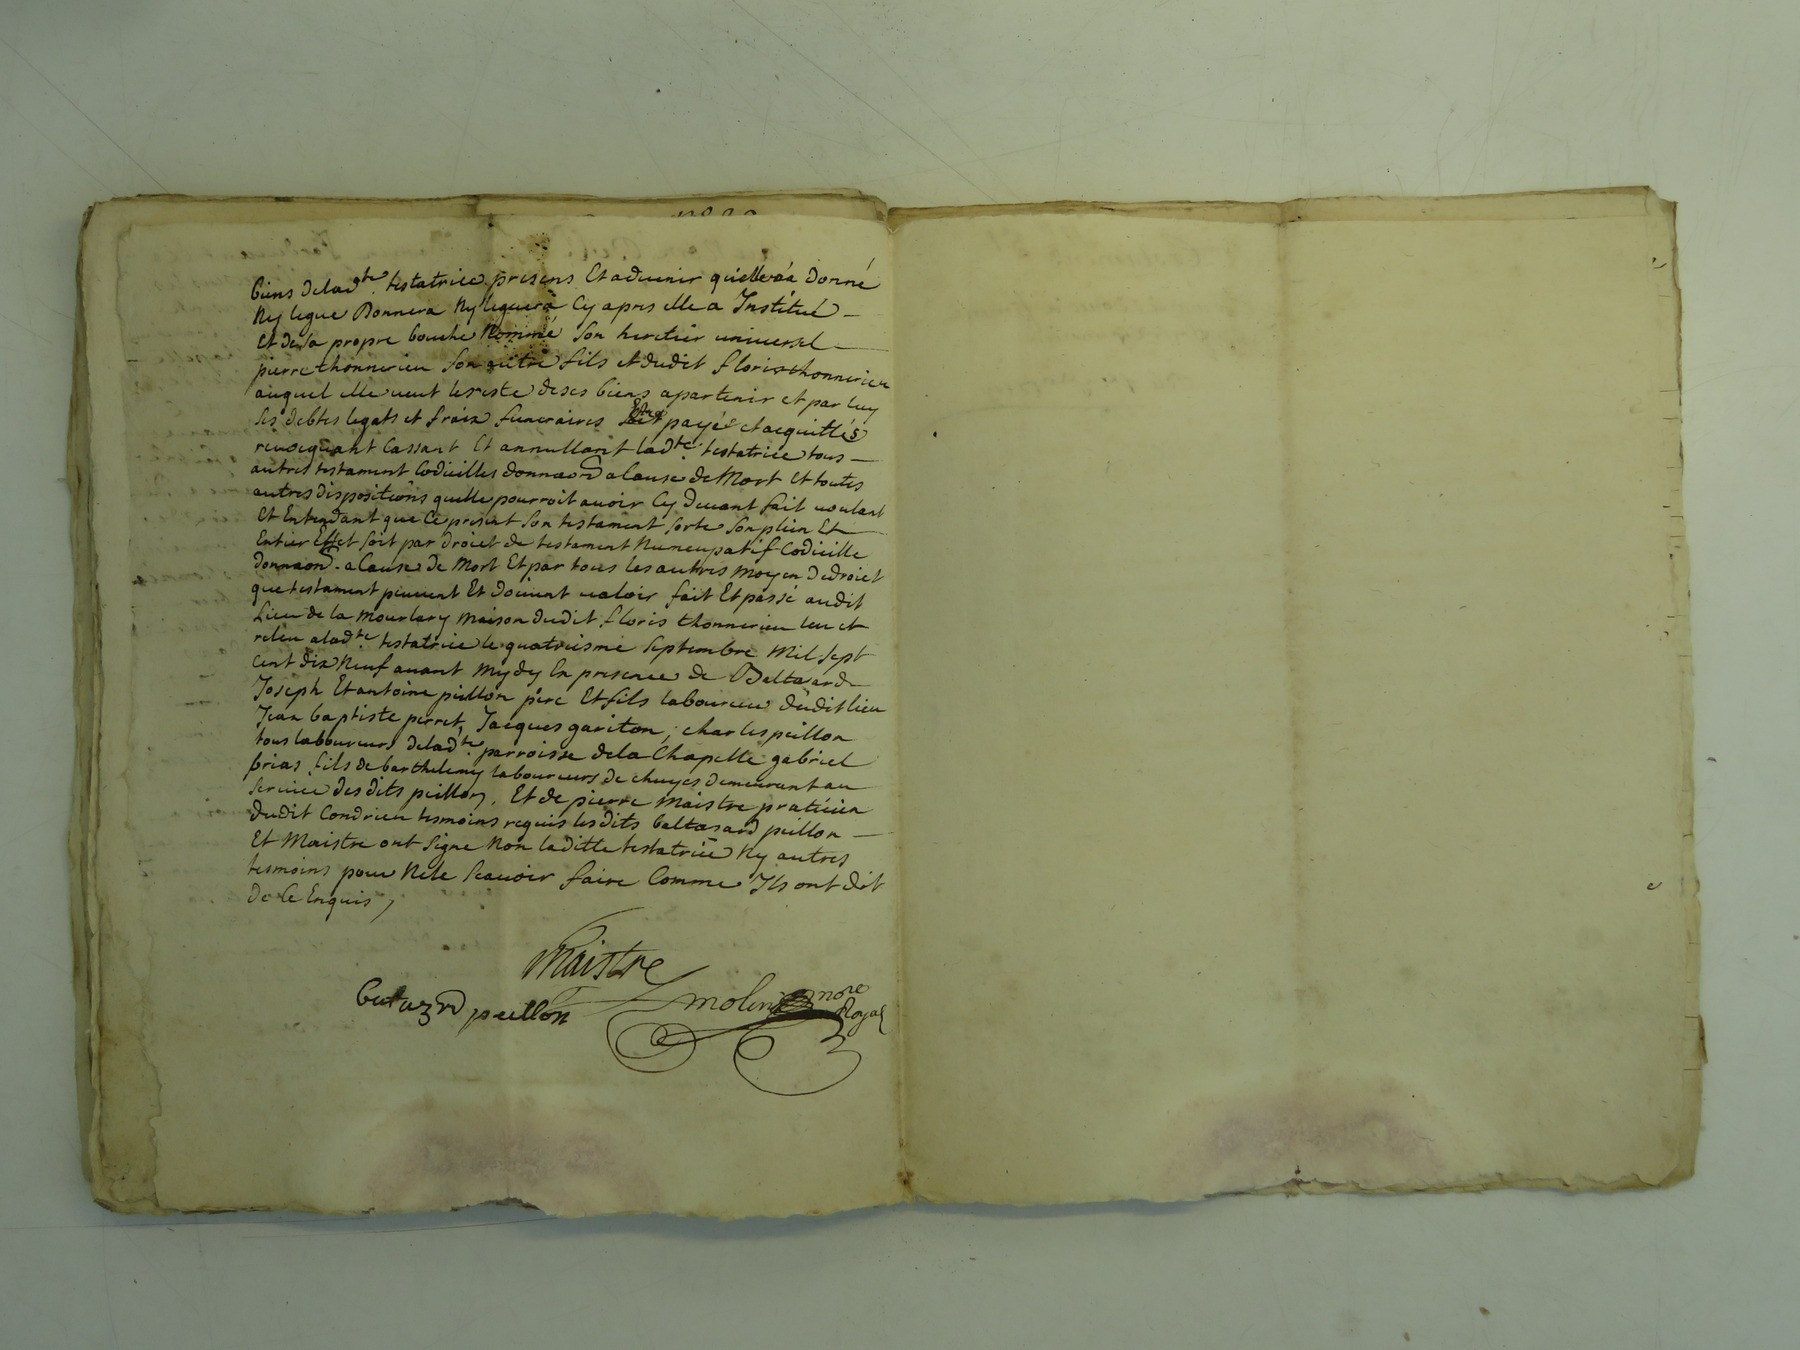 biens delad.te testatrice presens Et aduenir quelle n'a donné
Ny legue Donnera Ny leguera Cy apres elle a Institué
Et de sa propre bouche Nommé son heretier uniuersel
pierre thonnerieu son autre fils et dudit floris thonnerieu
auquel elle ueut le reste de ses biens apartenir et par luy
ses debtes legats et fraix funeraires Estre payés et acquittés
reuocquant Cassant Et annullant lad.te testatrice tous
autres testament Codicilles donnaõn a Cause de Mort Et toutes
autres dispositions quelle pourroit auoir Cy deuant fait uoulant
Et Entendant que Ce present son testament sorte son plein Et
Entier Effet soit par droict de testament Nuncupatif Codicille
donnaõn a Cause de Mort Et par tous les autres moyen de droict
que testament peuuent Et doiuent ualoir fait Et passé audit
Lieu de la mourlary maison dudit floris thonnerieu leu et
releu a lad.te testatrice le quatriesme septembre Mil sept
cent dix Neuf auant mydy En presence de Baltazard
Joseph Et antoine peillon pere Et fils laboureur dudit lieu
Jean baptiste perret, Jacques gariton, charles peillon
tous laboureurs delad.te parroisse de la Chapelle gabriel
brias fils de barthelemy laboureurs de chuyes demeurant au
seruice des dits peillon, Et de pierre Maistre praticien
dudit Condrieu tesmoins requis les dits baltasard peillon
Et Maistre ont signe Non laditte testatrice Ny autres
tesmoins pour Ne le scauoir faire Comme Ils ont dit
de Ce Enquis,
Maistre
peillon
nore
Royal